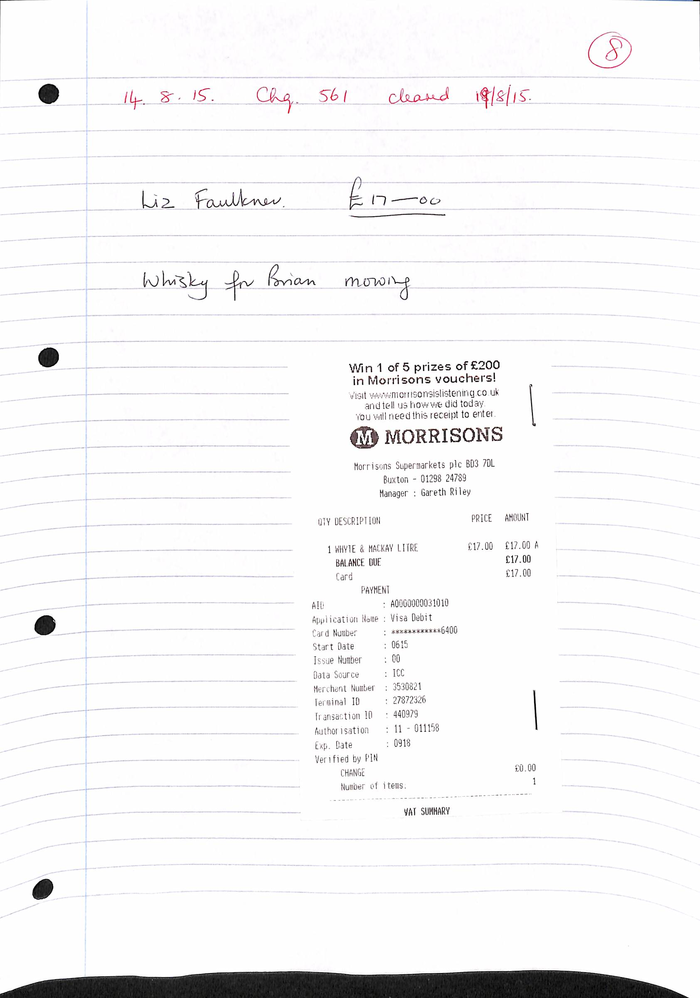 8
14. 8. 15. Chq. 561 cleared 19/8/15.
Liz Faulkner. £17—00
Whisky for Brian mowing
Win 1 of 5 prizes of £200
in Morrisons vouchers!
Visit www.morrisonsislistening.co.uk
and tell us how we did today.
You will need this receipt to enter.
M MORRISONS
Morrisons Supermarkets plc BD3 7DL
Buxton - 01298 24789
Manager : Gareth Riley
QTY DESCRIPTION PRICE AMOUNT
1 WHYTE & MACKAY LITRE £17.00 £17.00 A
BALANCE DUE £17.00
Card £17.00
PAYMENT
AID : A0000000031010
Application Name : Visa Debit
Card Number : ************6400
Start Date : 0615
Issue Number : 00
Data Source : ICC
Merchant Number : 3530821
Terminal ID : 27872326
Transaction ID : 440979
Authorisation : 11 - 011158
Exp. Date : 0918
Verified by PIN
CHANGE £0.00
Number of items. 1
VAT SUMMARY